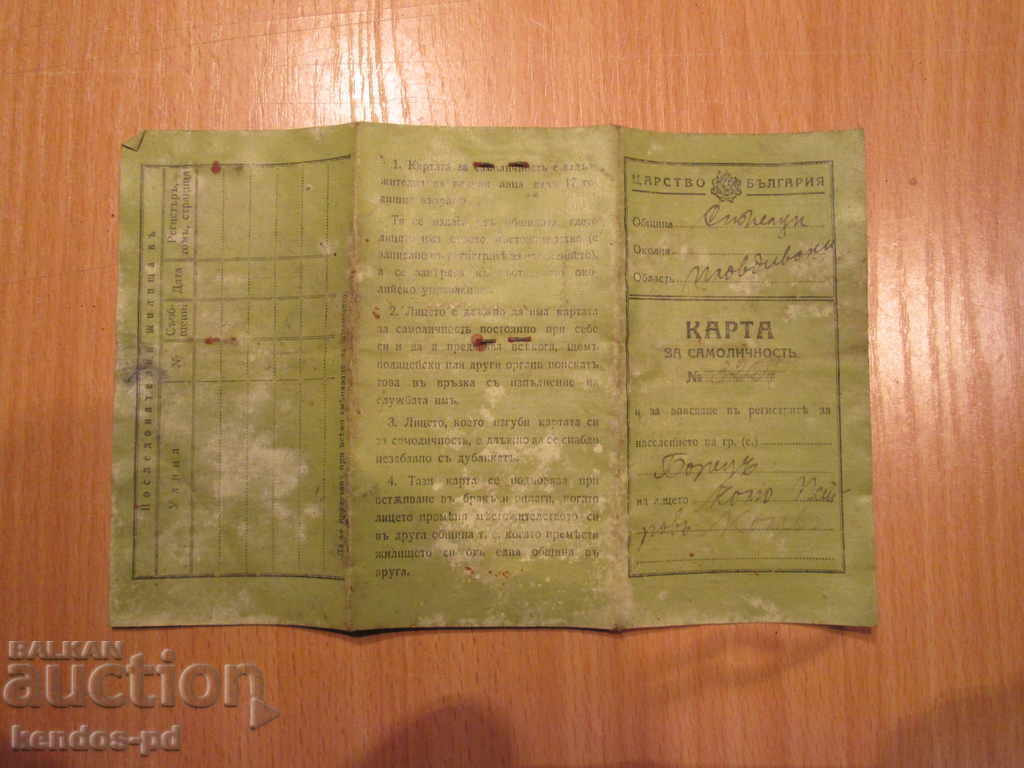 Последователни жилища въ
Улица
№
Съоб-
щение
Дата
Регистъръ,
томъ, страница
1. Картата за самоличность е задъл-
жителна за всички лица надъ 17 го-
дишна възрасть.
Тя се издава въ общината, где
лицето има своето местожителство (е
записано въ регистрите за населението),
а се заверява въ околий-
ско управление.
2. Лицето е длъжно да има картата
за самоличность постоянно при себе
си и да я предявява всѣкога, щомъ
полицейски или други органи поискатъ
това въ връзка съ изпълнение на
службата имъ.
3. Лицето, което изгуби картата си
за самоличность, е длъжно да се снабди
незабавно съ дубликатъ.
4. Тази карта се подновява при
встѫпване въ бракъ и всѣкога, когато
лицето промѣня мѣстожителството си
въ друга община т. е. когато премѣсти
жилището си отъ една община въ
друга.
ЦАРСТВО БЪЛГАРИЯ
Община
Околия
Область Пловдивска
КАРТА
ЗА САМОЛИЧНОСТЬ
№
за вписване въ регистритѣ за
населението на гр. (с.)
Борецъ
на лицето Кольо Пет-
ровъ
BALKAN
auction
kendos-pd